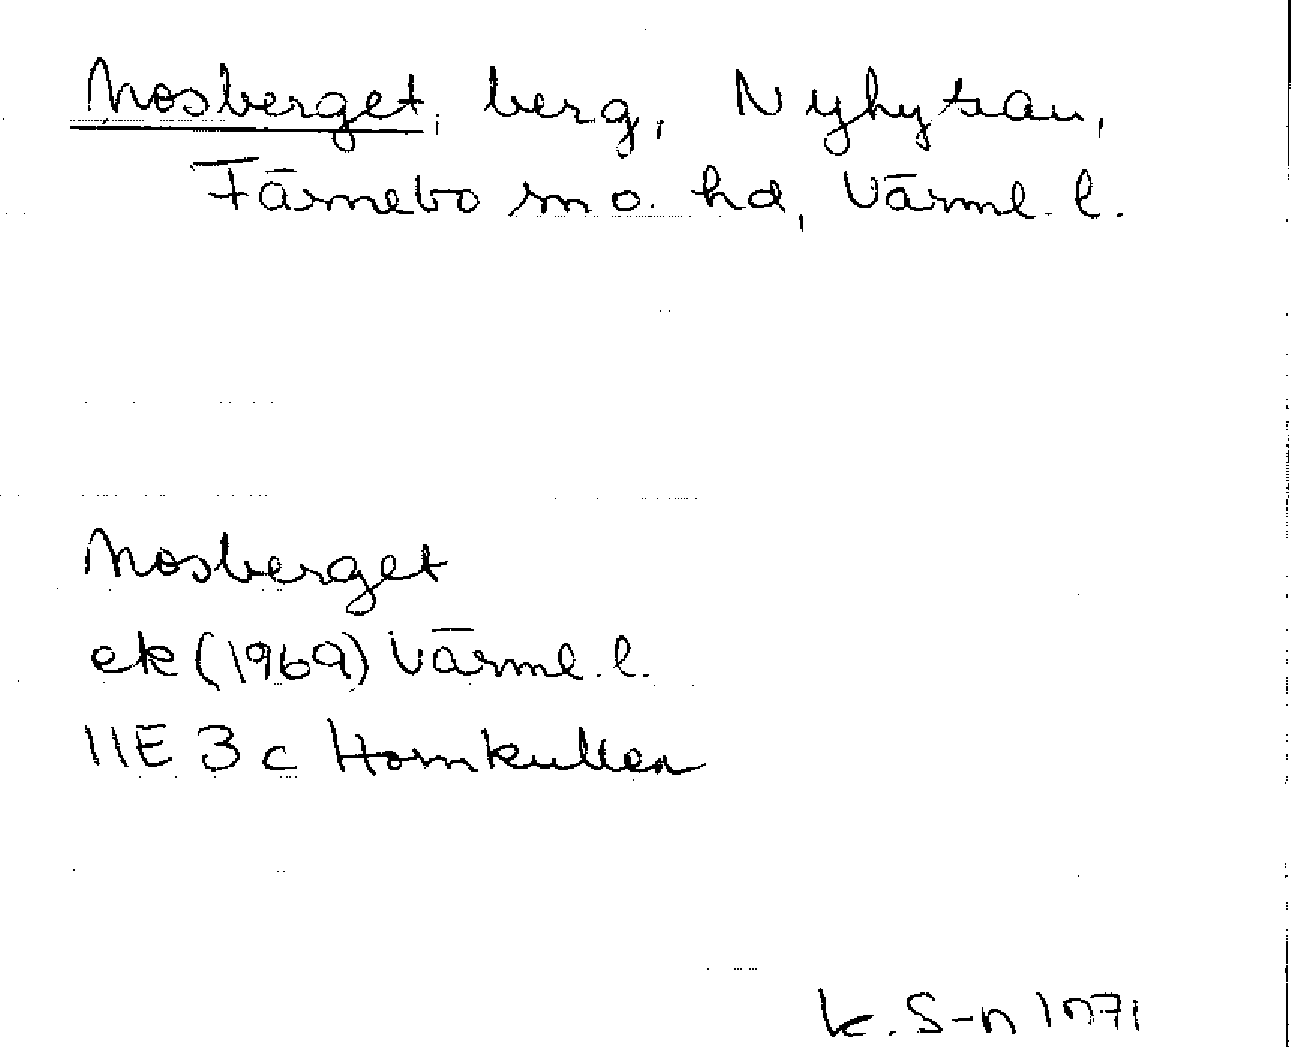 Mosberget, berg, Nyhyttan,
Färnebo sn o. hd, Värml. l.
Mosberget
ek (1969) Värml. l.
11E 3 c Hornkullen
K. S-n 1971